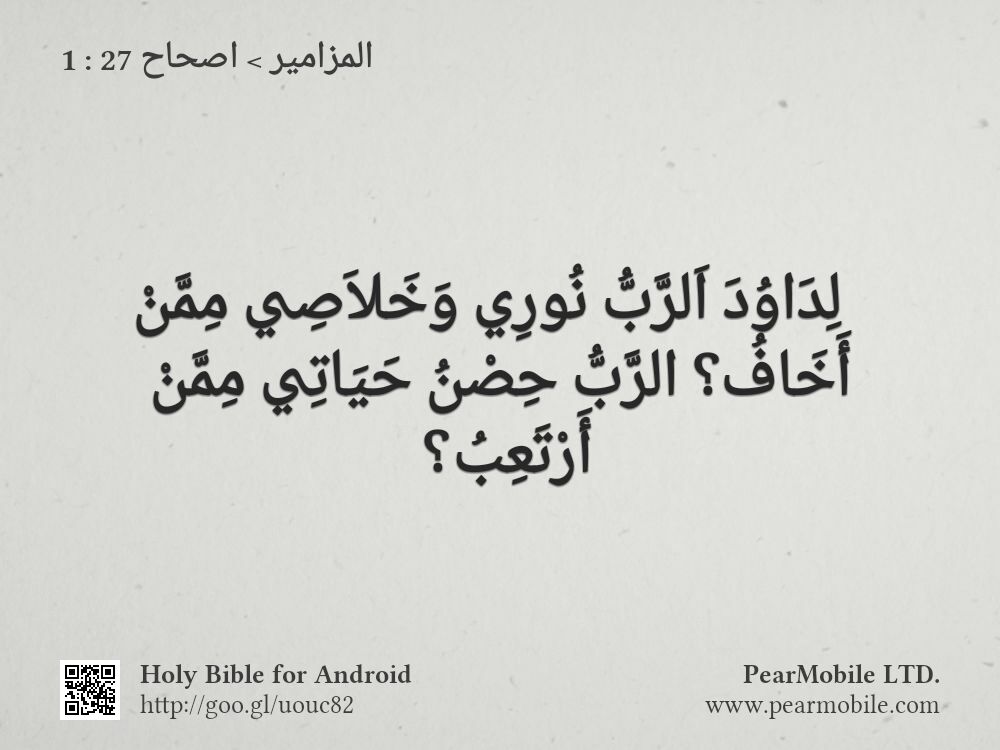 المزامير > اصحاح 27 : 1
لِدَاوُدَ اَلرَّبُّ نُورِي وَخَلاَصِي مِمَّنْ
أَخَافُ؟ الرَّبُّ حِصْنُ حَيَاتِي مِمَّنْ
أَرْتَعِبُ؟
Holy Bible for Android
http://goo.gl/uouc82
PearMobile LTD.
www.pearmobile.com